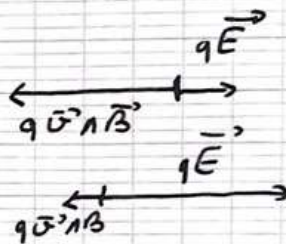 qE⃗
qv⃗∧B⃗
qE⃗
qv⃗∧B